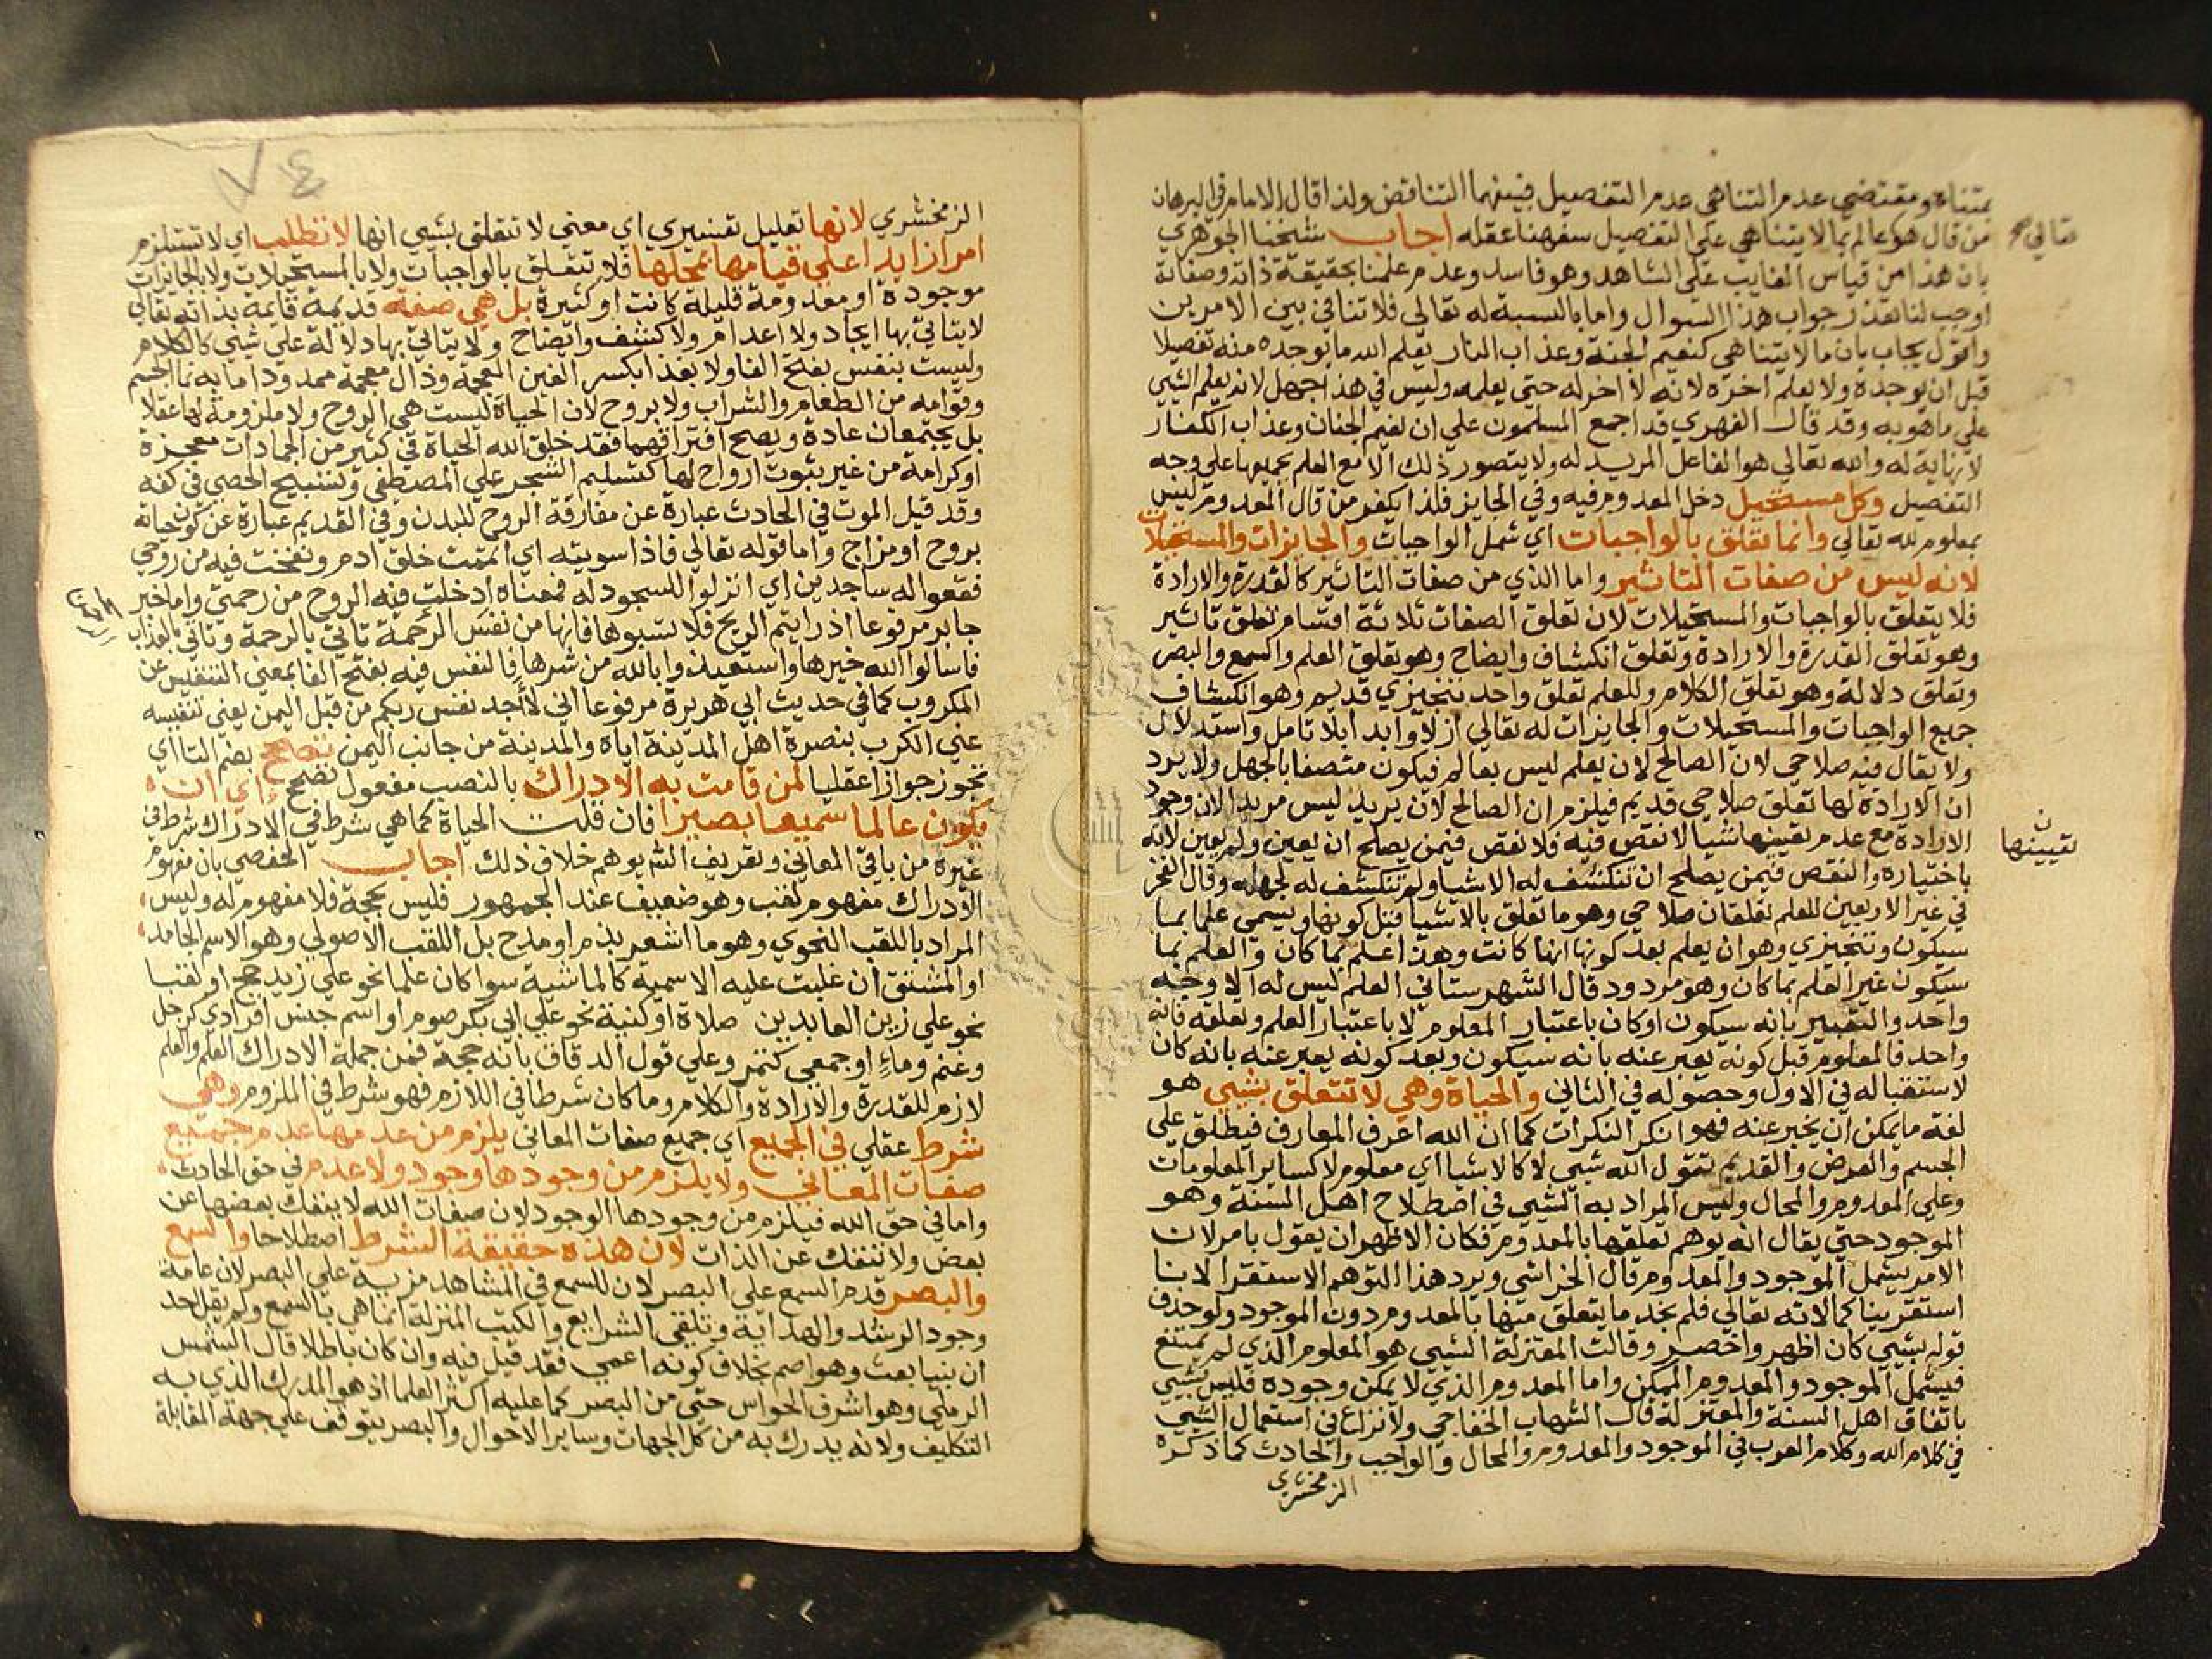 بمتناه ومقتضي عدم التناهي عدم التفصيل فبينهما التناقض ولذا قال الامام في البرهان
من قال هو عالم بما لا يتناهي علي التفصيل سفهنا عقله اجاب شيخنا الجوهري
تعالي صح
بان هذا من قياس الغايب علي الشاهد وهو فاسد وعدم علمنا بحقيقة ذاته وصفاته
اوجب لنا تعذر جواب هذا السوال واما بالنسبة له تعالي فلا تنافي بين الامرين
واقول يجاب بان ما لا يتناهي كنعيم الجنة وعذاب النار يعلم الله ما يوجده منه تفصيلا
قبل ان يوجده ولا يعلم اخره لانه لا اخر له حتي يعلمه وليس في هذا جهل لانه يعلم الشي
علي ما هو به وقد قال الفهري قد اجمع المسلمون علي ان نعيم الجنان وعذاب الكفار
لا نهاية له والله تعالي هو الفاعل المريد له ولا يتصور ذلك الا مع العلم بجميعها علي وجه
التفصيل وكل مستحيل دخل المعدوم فيه وفي الجايز فلذا يكفر من قال المعدوم ليس
بمعلوم لله تعالي وانما تعلق بالواجبات اي شمل الواجبات والجايزات والمستحيلات
لانه ليس من صفات التاثير واما الذي من صفات التاثير كالقدرة والارادة
فلا يتعلق بالواجبات والمستحيلات لان تعلق الصفات ثلاثة اقسام تعلق تاثير
وهو تعلق القدرة والارادة وتعلق انكشاف وايضاح وهو تعلق العلم والسمع والبصر
وتعلق دلالة وهو تعلق الكلام وللعلم تعلق واحد تنجيزي قديم وهو انكشاف
جميع الواجبات والمستحيلات والجايزات له تعالي ازلا وابدا بلا تامل واستدلال
ولا يقال فيه صلاحي لان الصالح لان يعلم ليس بعالم فيكون متصفا بالجهل ولا يرد
ان الارادة لها تعلق صلاحي قديم فيلزم ان الصالح لان يريد ليس مريدا لان وجود
الارادة مع عدم تعيينها شيا لا نقص فيه فلا نقص فيمن يصلح ان يعين ولم يعين لانه
تعيينها ن
باختياره والنقص فيمن يصلح ان تنكشف له الاشيا ولم تنكشف له لجهله وقال الفخر
في غير الاربعين للعلم تعلقان صلاحي وهو ما تعلق بالاشيا قبل كونها ويسمي علما بما
سيكون وتنجيزي وهو ان يعلم بعد كونها انها كانت وهذا علم بما كان والعلم بما
سيكون غير العلم بما كان وهو مردود قال الشهرستاني العلم ليس له الا وجه
واحد والتعبير بانه سيكون او كان باعتبار المعلوم لا باعتبار العلم وتعلقه فانه
واحد فالمعلوم قبل كونه يعبر عنه بانه سيكون وبعد كونه يعبر عنه بانه كان
لاستقباله في الاول وحصوله في الثاني والحياة وهي لا تتعلق بشيي هو
لغة ما يمكن ان يخبر عنه فهو انكر النكرات كما ان الله اعرف المعارف فيطلق علي
الجسم والعرض والقديم تقول الله شيي لا كالاشيا اي معلوم لا كساير المعلومات
وعلي المعدوم والمحال وليس المراد به الشيي في اصطلاح اهل السنة وهو
الموجود حتي يقال انه يوهم تعلقها بالمعدوم فكان الاظهر ان يقول بامر لان
الامر يشمل الموجود والمعدوم قال الخراشي ويرد هذا التوهم الاستقرا لاننا
استقرينا كمالاته تعالي فلم نجد ما يتعلق منها بالمعدوم دون الموجود ولو حذف
قوله بشيي كان اظهر واخصر وقالت المعتزلة الشيي هو المعلوم الذي لم يمتنع
فيشمل الموجود والمعدوم الممكن واما المعدوم الذي لا يمكن وجوده فليس بشيي
باتفاق اهل السنة والمعتزلة قال الشهاب الخفاجي ولا نزاع في استعمال الشيي
في كلام الله وكلام العرب في الموجود والمعدوم والمحال والواجب والحادث كما ذكره
الزمخشري
٧٤
الزمخشري لانها تعليل تفسيري اي معني لا تتعلق بشيي انها لا تطلب اي لا تستلزم
امرا زايدا علي قيامها بمحلها فلا تتعلق بالواجبات ولا بالمستحيلات ولا بالجايزات
موجودة او معدومة قليلة كانت او كثيرة بل هي صفة قديمة قايمة بذاته تعالي
لا يتاتي بها ايجاد ولا اعدام ولا كشف وايضاح ولا يتاتي بها دلالة علي شيي كالكلام
وليست بنفس بفتح الفا ولا بغذا بكسر الغين المعجمة وذال معجمة ممدودا ما به نما الجسم
وقوامه من الطعام والشراب ولا بروح لان الحياة ليست هي الروح ولا ملزومة لها عقلا
بل يجتمعان عادة ويصح افتراقهما فقد خلق الله الحياة في كثير من الجمادات معجزة
او كرامة من غير ثبوت ارواح لها كتسليم الشجر علي المصطفي وتسبيح الحصي في كفه
وقد قيل الموت في الحادث عبارة عن مفارقة الروح للبدن وفي القديم عبارة عن كون حياته
بروح او مزاج واما قوله تعالي فاذا سويته اي اتممت خلق ادم ونفخت فيه من روحي
فقعوا له ساجدين اي انزلوا للسجود له فمعناه ادخلت فيه الروح من رحمتي واما خبر
جابر مرفوعا اذا رايتم الريح فلا تسبوها فانها من نفس الرحمة تاتي بالرحمة وتاتي بالعذاب
فاسالوا الله خيرها واستعيذوا بالله من شرها فالنفس فيه بفتح الفا بمعني التنفيس عن
المكروب كما في حديث ابي هريرة مرفوعا اني لاجد نفس ربكم من قبل اليمن يعني تنفيسه
عني الكرب بنصرة اهل المدينة اياه والمدينة من جانب اليمن تصحح بضم التا اي
تجوز جوازا عقليا لمن قامت به الادراك بالنصب مفعول تصحح اي ان
يكون عالما سميعا بصيرا فان قلت الحياة كما هي شرط في الادراك شرط في
غيره من باقي المعاني وتعريف الش يوهم خلاف ذلك اجاب الحفصي بان مفهوم
الادراك مفهوم لقب وهو ضعيف عند الجمهور فليس بحجة فلا مفهوم له وليس
المراد باللقب النحوي وهو ما اشعر بذم او مدح بل اللقب الاصولي وهو الاسم الجامد
او المشتق ان غلبت عليه الاسمية كالماشية سوا كان علما نحو علي زيد حج او لقبا
نحو علي زين العابدين صلاة او كنية نحو علي ابي بكر صوم او اسم جنس افرادي كرجل
وغنم وماء او جمعي كتمر وعلي قول الدقاق بانه حجة فمن جملة الادراك العلم والعلم
لازم للقدرة والارادة والكلام وما كان شرطا في اللازم فهو شرط في الملزوم وهي
شرط عقلي في الجميع اي جميع صفات المعاني يلزم من عدمها عدم جميع
صفات المعاني ولا يلزم من وجودها وجود ولا عدم في حق الحادث
واما في حق الله فيلزم من وجودها الوجود لان صفات الله لا ينفك بعضها عن
بعض ولا تنفك عن الذات لان هذه حقيقة الشرط اصطلاحا والسمع
والبصر قدم السمع علي البصر لان للسمع في المشاهد مزية علي البصر لان عامة
وجود الرشد والهداية وتلقي الشرايع والكتب المنزلة انما هي بالسمع ولم يقل احد
ان نبيا بعث وهو اصم بخلاف كونه اعمي فقد قيل فيه وان كان باطلا قال الشمس
الرملي وهو اشرف الحواس حتي من البصر كما عليه اكثر العلما اذ هو المدرك الذي به
التكليف ولانه يدرك به من كل الجهات وساير الاحوال والبصر يتوقف علي جهة المقابلة